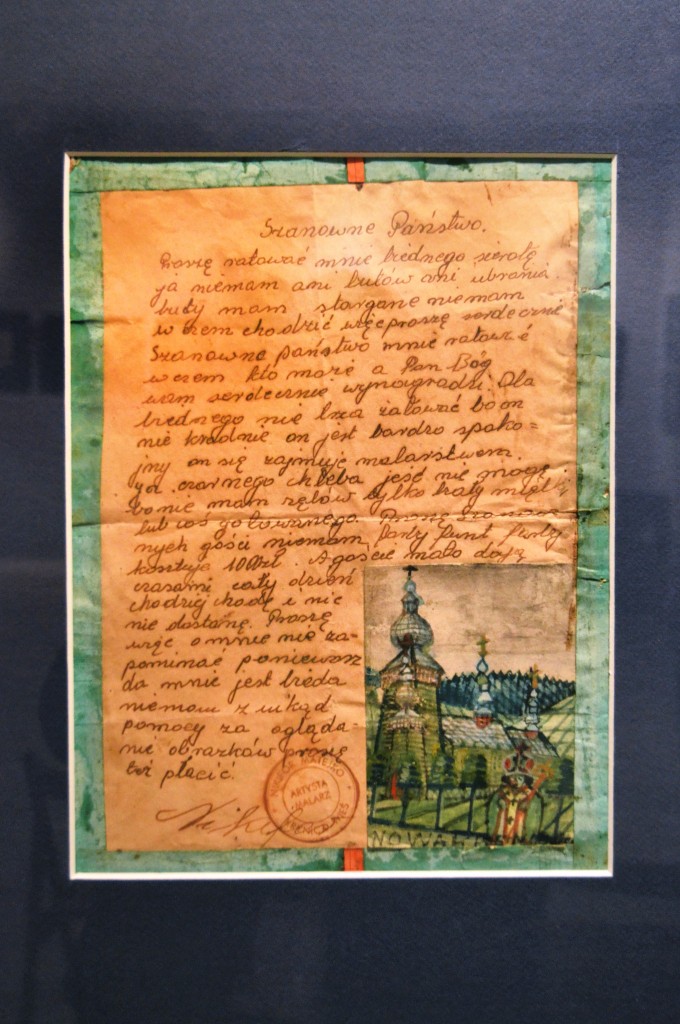 Szanowne Państwo.
Proszę ratować mnie biednego sierotę
ja niemam ani butów ani ubrania
buty mam stargane niemam
w czem chodzić więc proszę serdecznie
Szanowne państwo mnie ratować
w czem kto może a Pan Bóg
wam serdecznie wynagrodzi. Dla
biednego nie trza żałować bo on
nie kradnie on jest bardzo spoko=
jny on się zajmuje malarstwem.
ja czarnego chleba jeść nie mogę
bo nie mam zębów tylko biały
lub coś gotowanego. Proszę
nych gości niemam farby funt farby
kosztuje 100zł. A goście mało dają
czasami cały dzień
chodzię chodę i nic
nie dostanę. Proszę
więc o mnie nie za-
pominać poniewarz
da mnie jest bieda
niemam z nikąd
pomocy za ogląda-
nie obrazków proszę
też płacić.
Nikifor
MATEJKO
ARTYSTA
MALARZ
NOWA